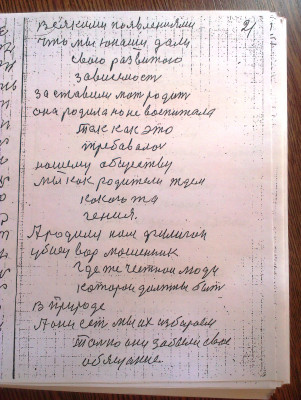 2)
всякими появлениями
что мы юнаши дали
свого развитого
зависност
заставили мот родит
она родила но не воспитала
так как это
требавалос
нашему обществу
мы как родители ждем
какого та
гения.
А родили нам
убиец вор мошенник
где же честной люди
которой должны быт
в природе
А они ест мы их избираем
толко они забыли свое
обещание